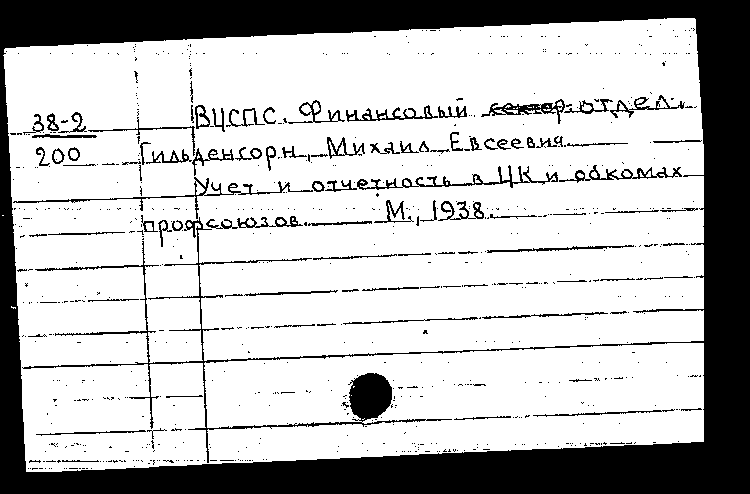 38-2 ВЦСПС. Финансовый сектор отдел.
200 Гильденгорн, Михаил Евсеевич
Учет и отчетность в ЦК и обкомах
профсоюзов. М., 1938.